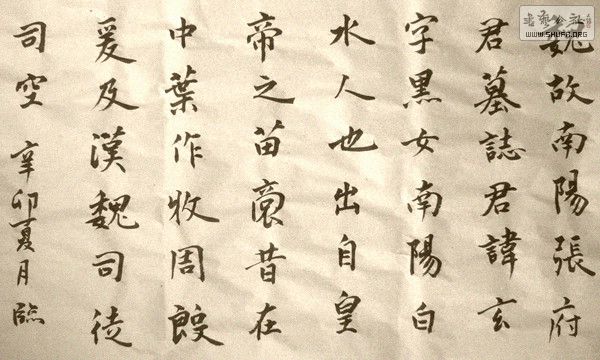 魏故南陽張府
君墓誌君諱玄
字黑女南陽白
水人也出自皇
帝之苗裔昔在
中葉作牧周殷
爰及漢魏司徒
司空 辛卯夏月臨
書藝公社
WWW.SHUFA.ORG